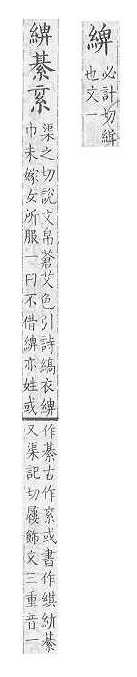 綼
必計切緝
也文一
綥綦䋛
渠之切說文帛蒼艾色引詩縞衣綥
巾未嫁女所服一曰不借綥亦姓或
作綦古作䋛或書作綨䋈綦
又渠記切屨飾文三重音一